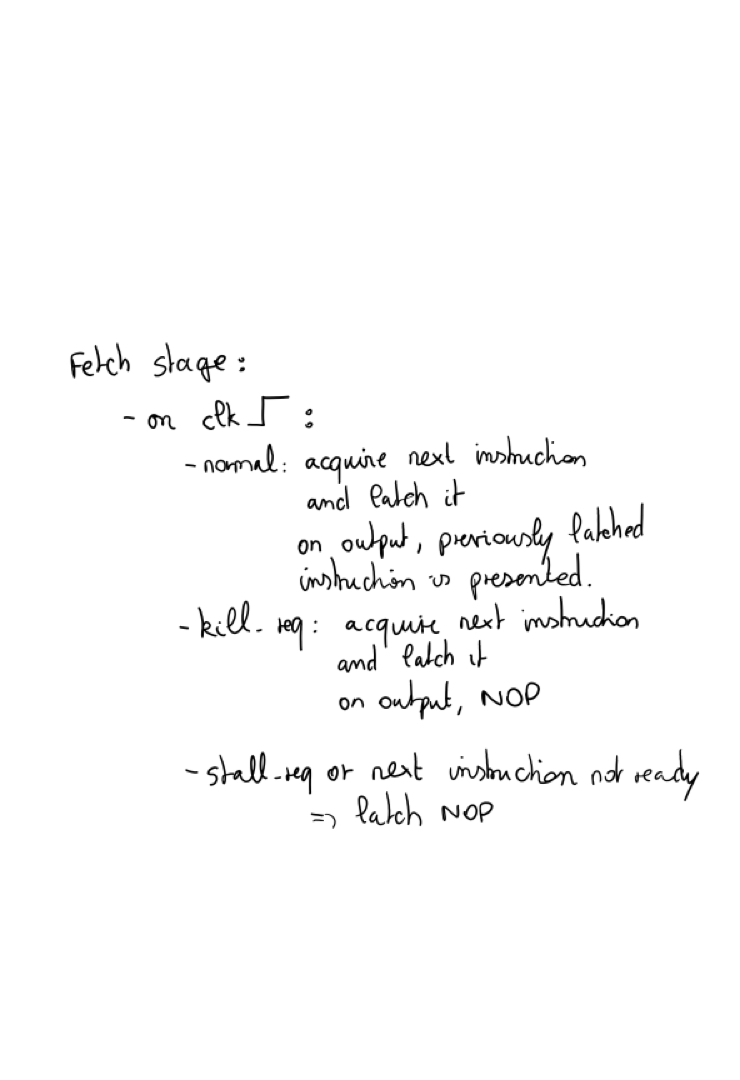 Fetch stage:
- on clk :
- normal: acquire next instruction
and latch it
on output, previously latched
instruction is presented.
- kill_req: acquire next instruction
and latch it
on output, NOP
- stall_req or next instruction not ready
=> latch NOP